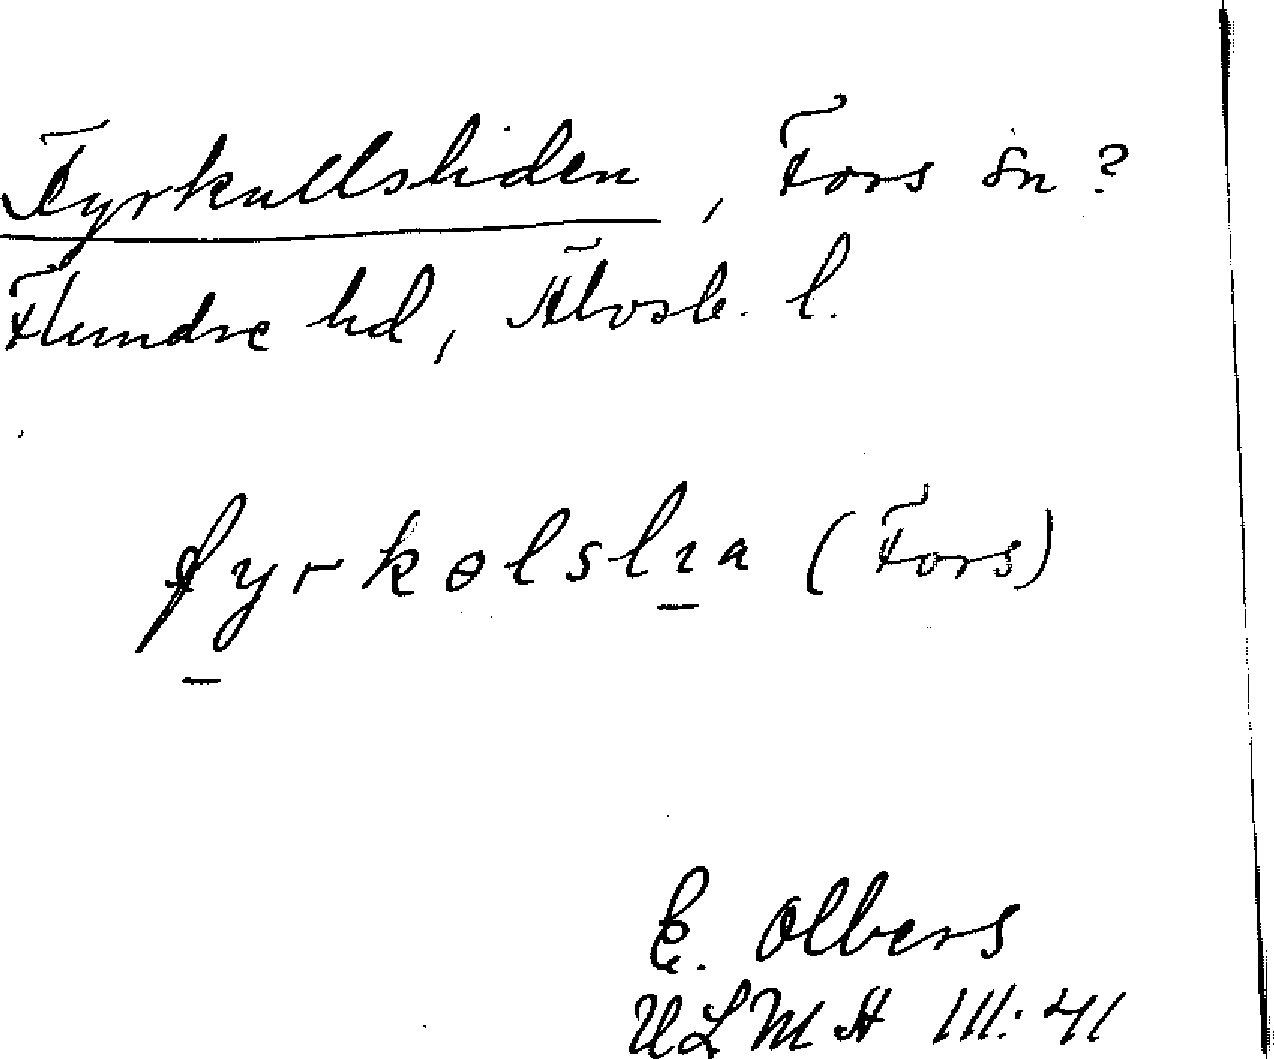 Fyrkullsliden, Fors sn?
Flundre hd, Älvsb. l.
fyrkəlslɩa (Fors)
E. Olbers
ULMA 111:41